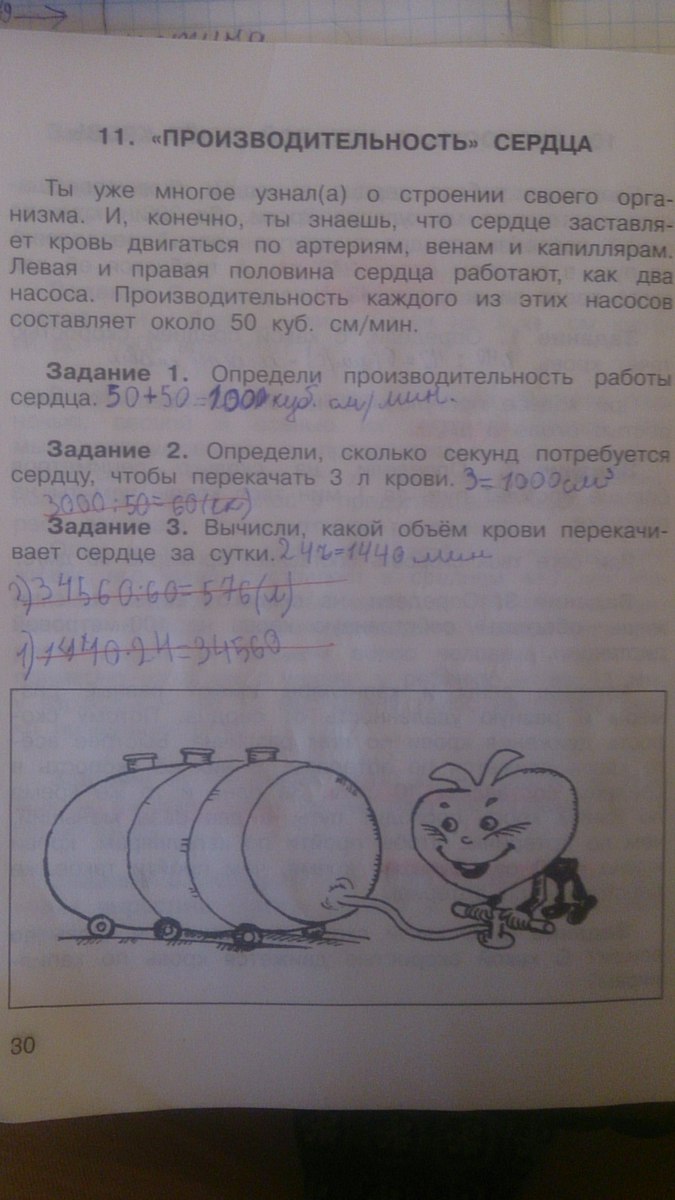 11. «ПРОИЗВОДИТЕЛЬНОСТЬ» СЕРДЦА
Ты уже многое узнал(а) о строении своего орга-
низма. И, конечно, ты знаешь, что сердце заставля-
ет кровь двигаться по артериям, венам и капиллярам.
Левая и правая половина сердца работают, как два
насоса. Производительность каждого из этих насосов
составляет около 50 куб. см/мин.
Задание 1. Определи производительность работы
сердца. 50+50=1000 куб. см/мин.
Задание 2. Определи, сколько секунд потребуется
сердцу, чтобы перекачать 3 л крови. 3=1000см³
3000:50=60(сек)
Задание 3. Вычисли, какой объём крови перекачи-
вает сердце за сутки. 24ч=1440 мин
2)34560:60=576(л)
1)1440·24=34560
30